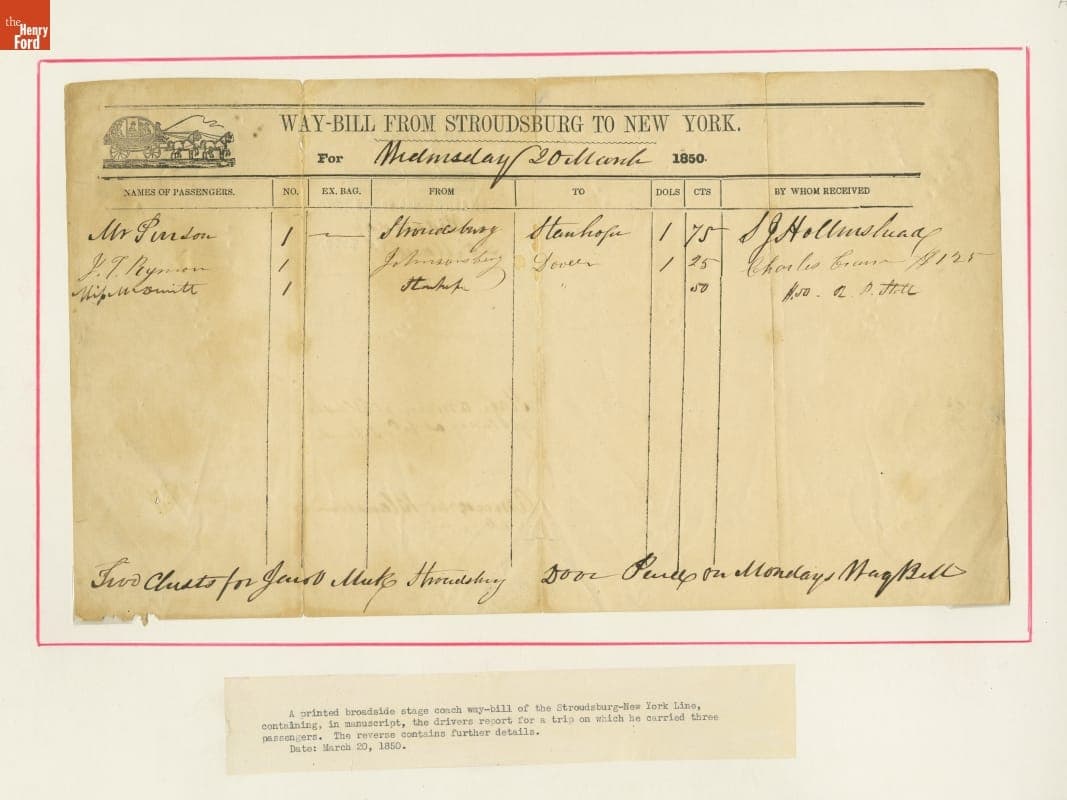 the Henry Ford
WAY-BILL FROM STROUDSBURG TO NEW YORK.
For Wednesday 20 March 1850.
NAMES OF PASSENGERS. NO. EX. BAG. FROM TO DOLS CTS BY WHOM RECEIVED
Mr 1 — Stroudsburg Stanhope 1 75 S J Hollinshead
1 Johnsonsburg Dover 1 25 Charles $1 25
1 Stanhope " 50 $.50
Two Chests for Stroudsburg Dover on Mondays Way Bill
A printed broadside stage coach way-bill of the Stroudsburg-New York Line,
containing, in manuscript, the drivers report for a trip on which he carried three
passengers. The reverse contains further details.
Date: March 20, 1850.